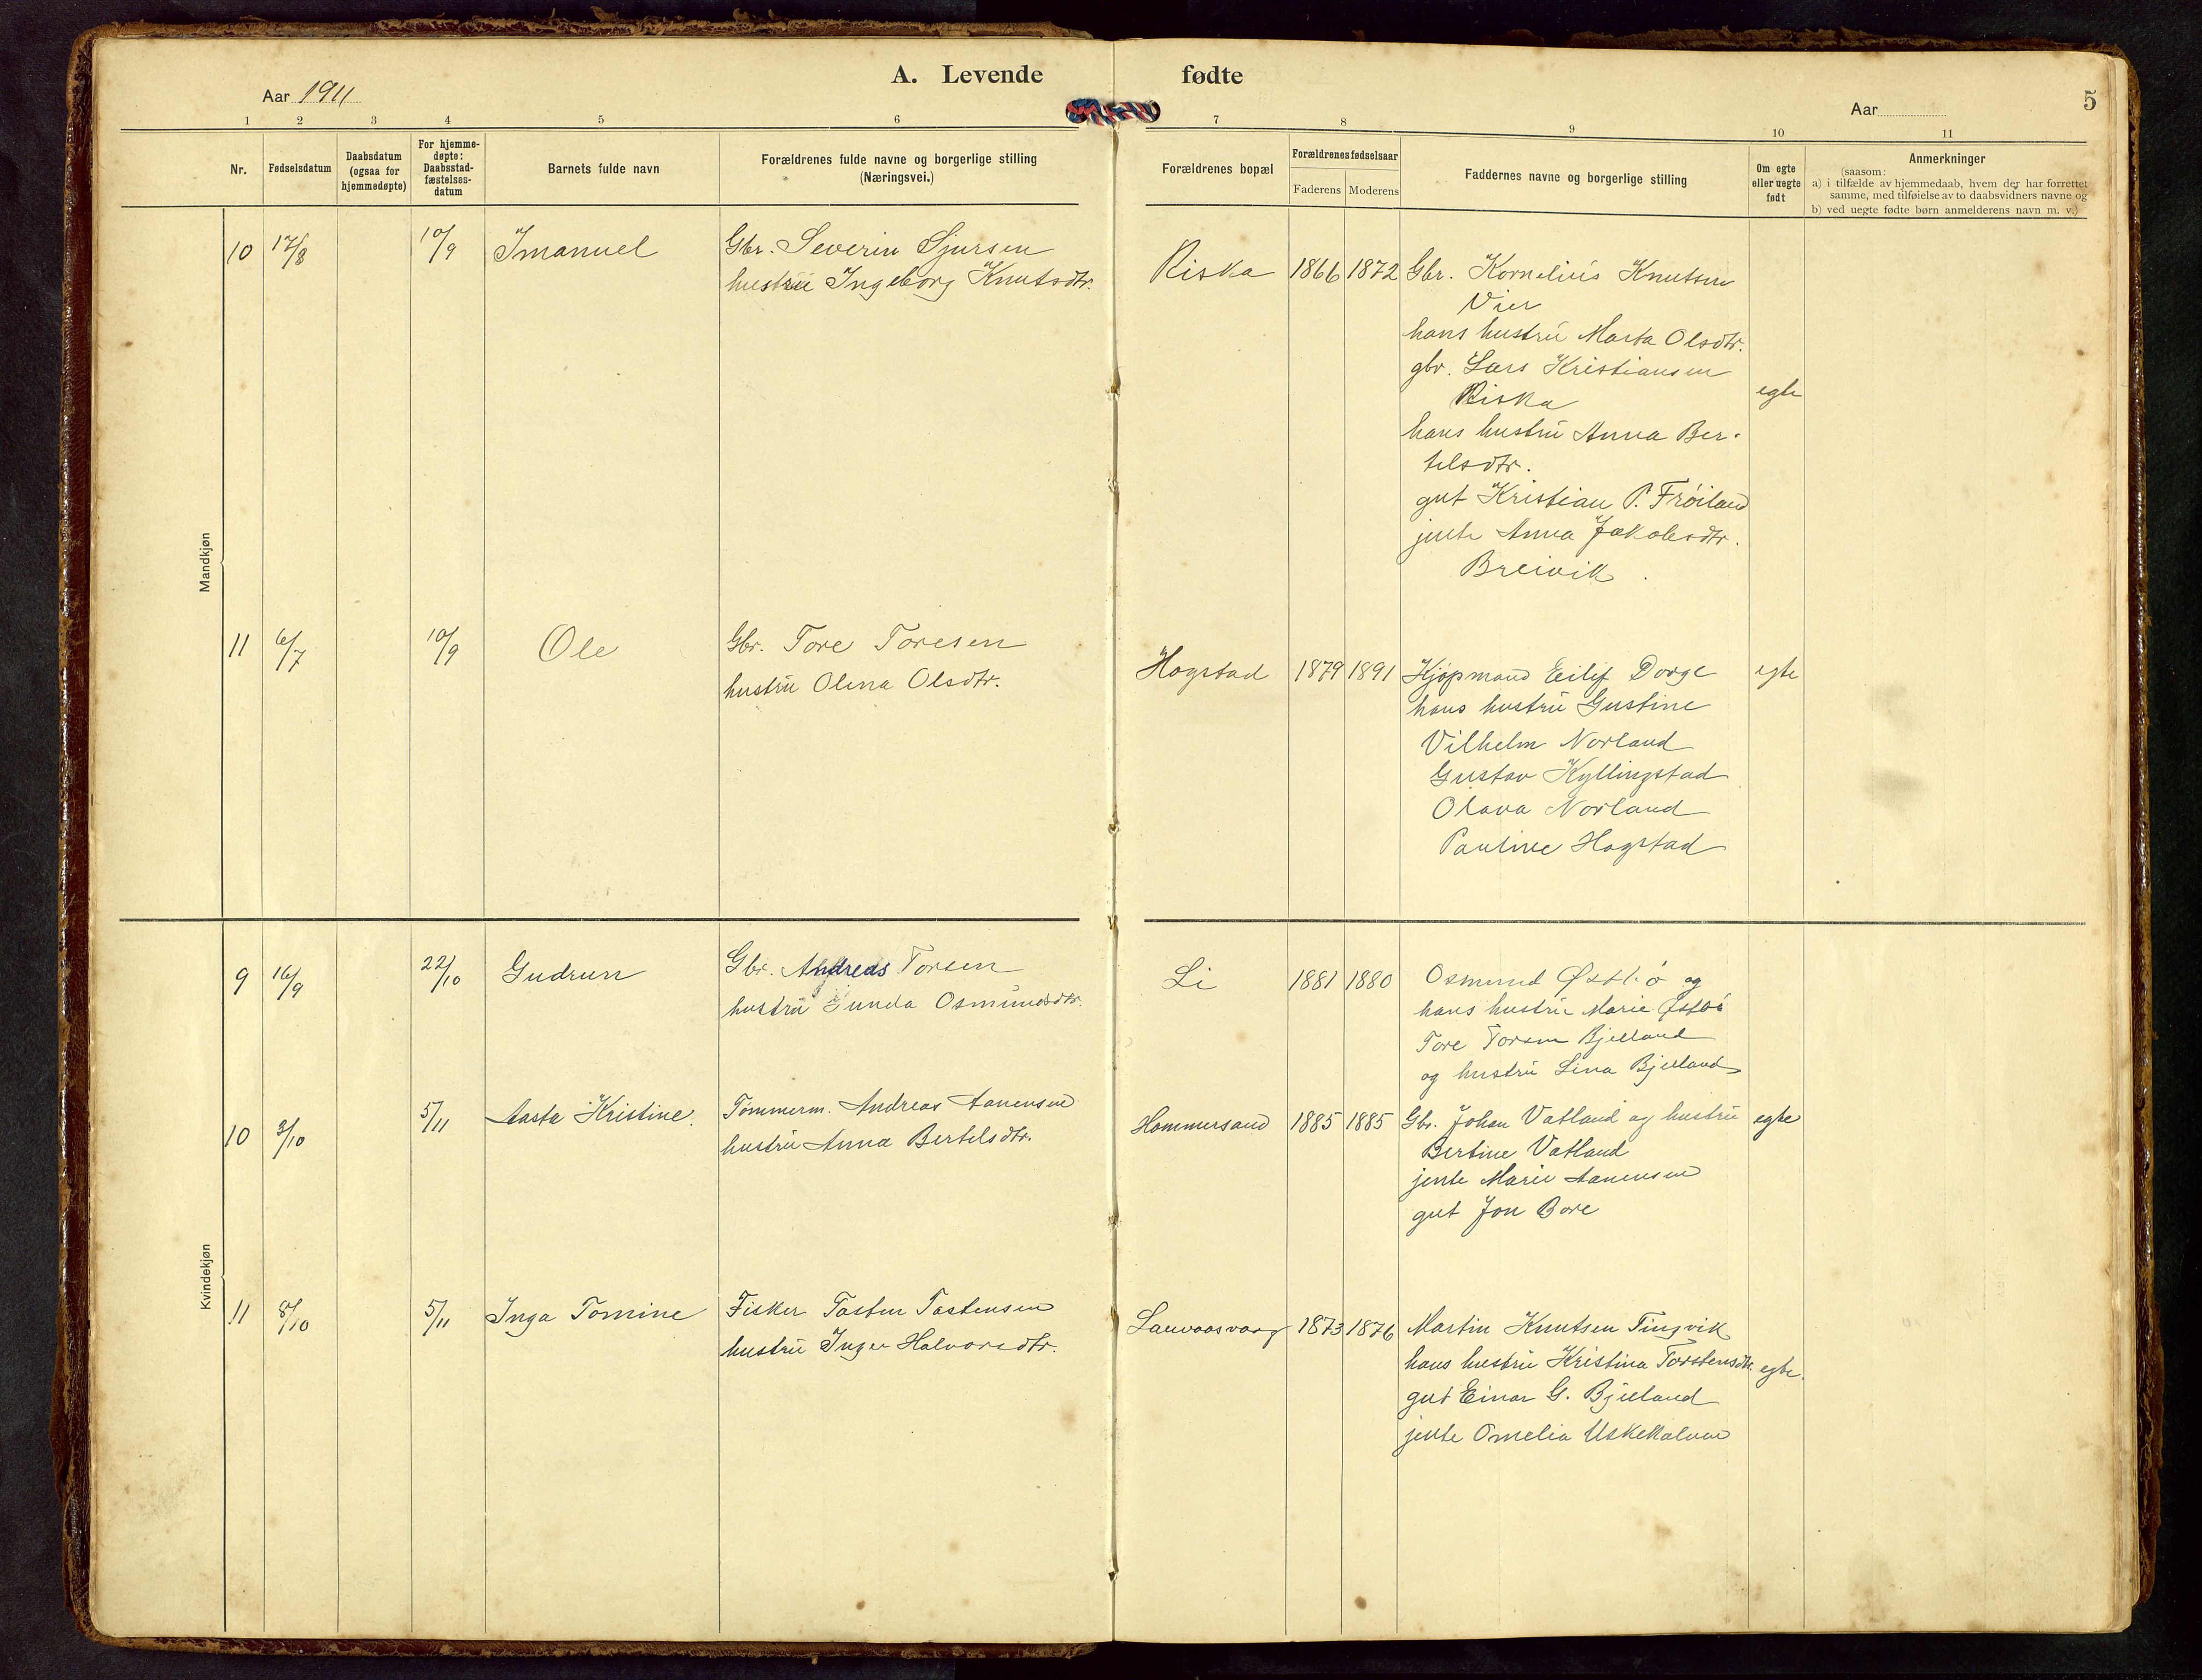 A. Levende fødte
Aar 1911
Aar
5
1 2 3 4 5 6 7 8 9 10 11
Nr.
Fødselsdatum
Daabsdatum
(ogsaa for
hjemmedøpte)
For hjemme-
døpte:
Daabsstad-
fæstelses-
datum
Barnets fulde navn
Forældrenes fulde navne og borgerlige stilling
(Næringsvei.)
Forældrenes bopæl
Forældrenes fødselsaar
Faderens Moderens
Faddernes navne og borgerlige stilling
Om egte
eller uegte
født
Anmerkninger
(saasom:
a) i tilfælde av hjemmedaab, hvem der har forrettet
samme, med tilføielse av to daabsvidners navne og
b) ved uegte fødte børn anmelderens navn m. v.)
Mandkjøn
10 17/8 10/9 Imanuel
Gbr. Severin Sjursen
hustru Ingeborg Knutsdtr.
Riska 1866 1872
Gbr. Kornelius Knutsen
Vier
hans hustru Marta Olsdtr.
gbr. Lars Kristiansen
Riska
egte
hans hustru Anna Ber-
telsdtr.
gut Kristian P. Frøiland
jente Anna Jakobsdtr.
Breivik.
11 6/7 10/9 Ole
Gbr. Tore Toresen
hustru Olina Olsdtr.
Hogstad 1879 1891
Kjøpmand Eilif Dorge egte
hans hustru Gustine
Vilhelm Norland
Gustav Kyllingstad
Olava Norland
Pauline Hogstad
Kvindekjøn
9 16/9 22/10 Gudrun
Gbr. Andreas Torsen
hustru Gunda Osmundsdtr.
Li 1881 1880
Osmund Østbø og
hans hustru Marie Østbø
Tore Torsen Bjelland
og hustru Lina Bjelland
10 3/10 5/11 Aasta Kristine.
Tømmerm. Andreas Aanensen
hustru Anna Bertelsdtr.
Hommersand 1885 1885
Gbr. Johan Vatland og hustru egte
Bertine Vatland
jente Marie Aanensen
gut Jon Bore
11 8/10 5/11 Inga Tomine
Fisker Tosten Tostensen
hustru Inger Halvorsdtr.
1873 1876
Martin Knutsen Tingvik
hans hustru Kristina Torstensdtr. egte.
gut Einar G. Bjelland
jente Omelia Uskekalven